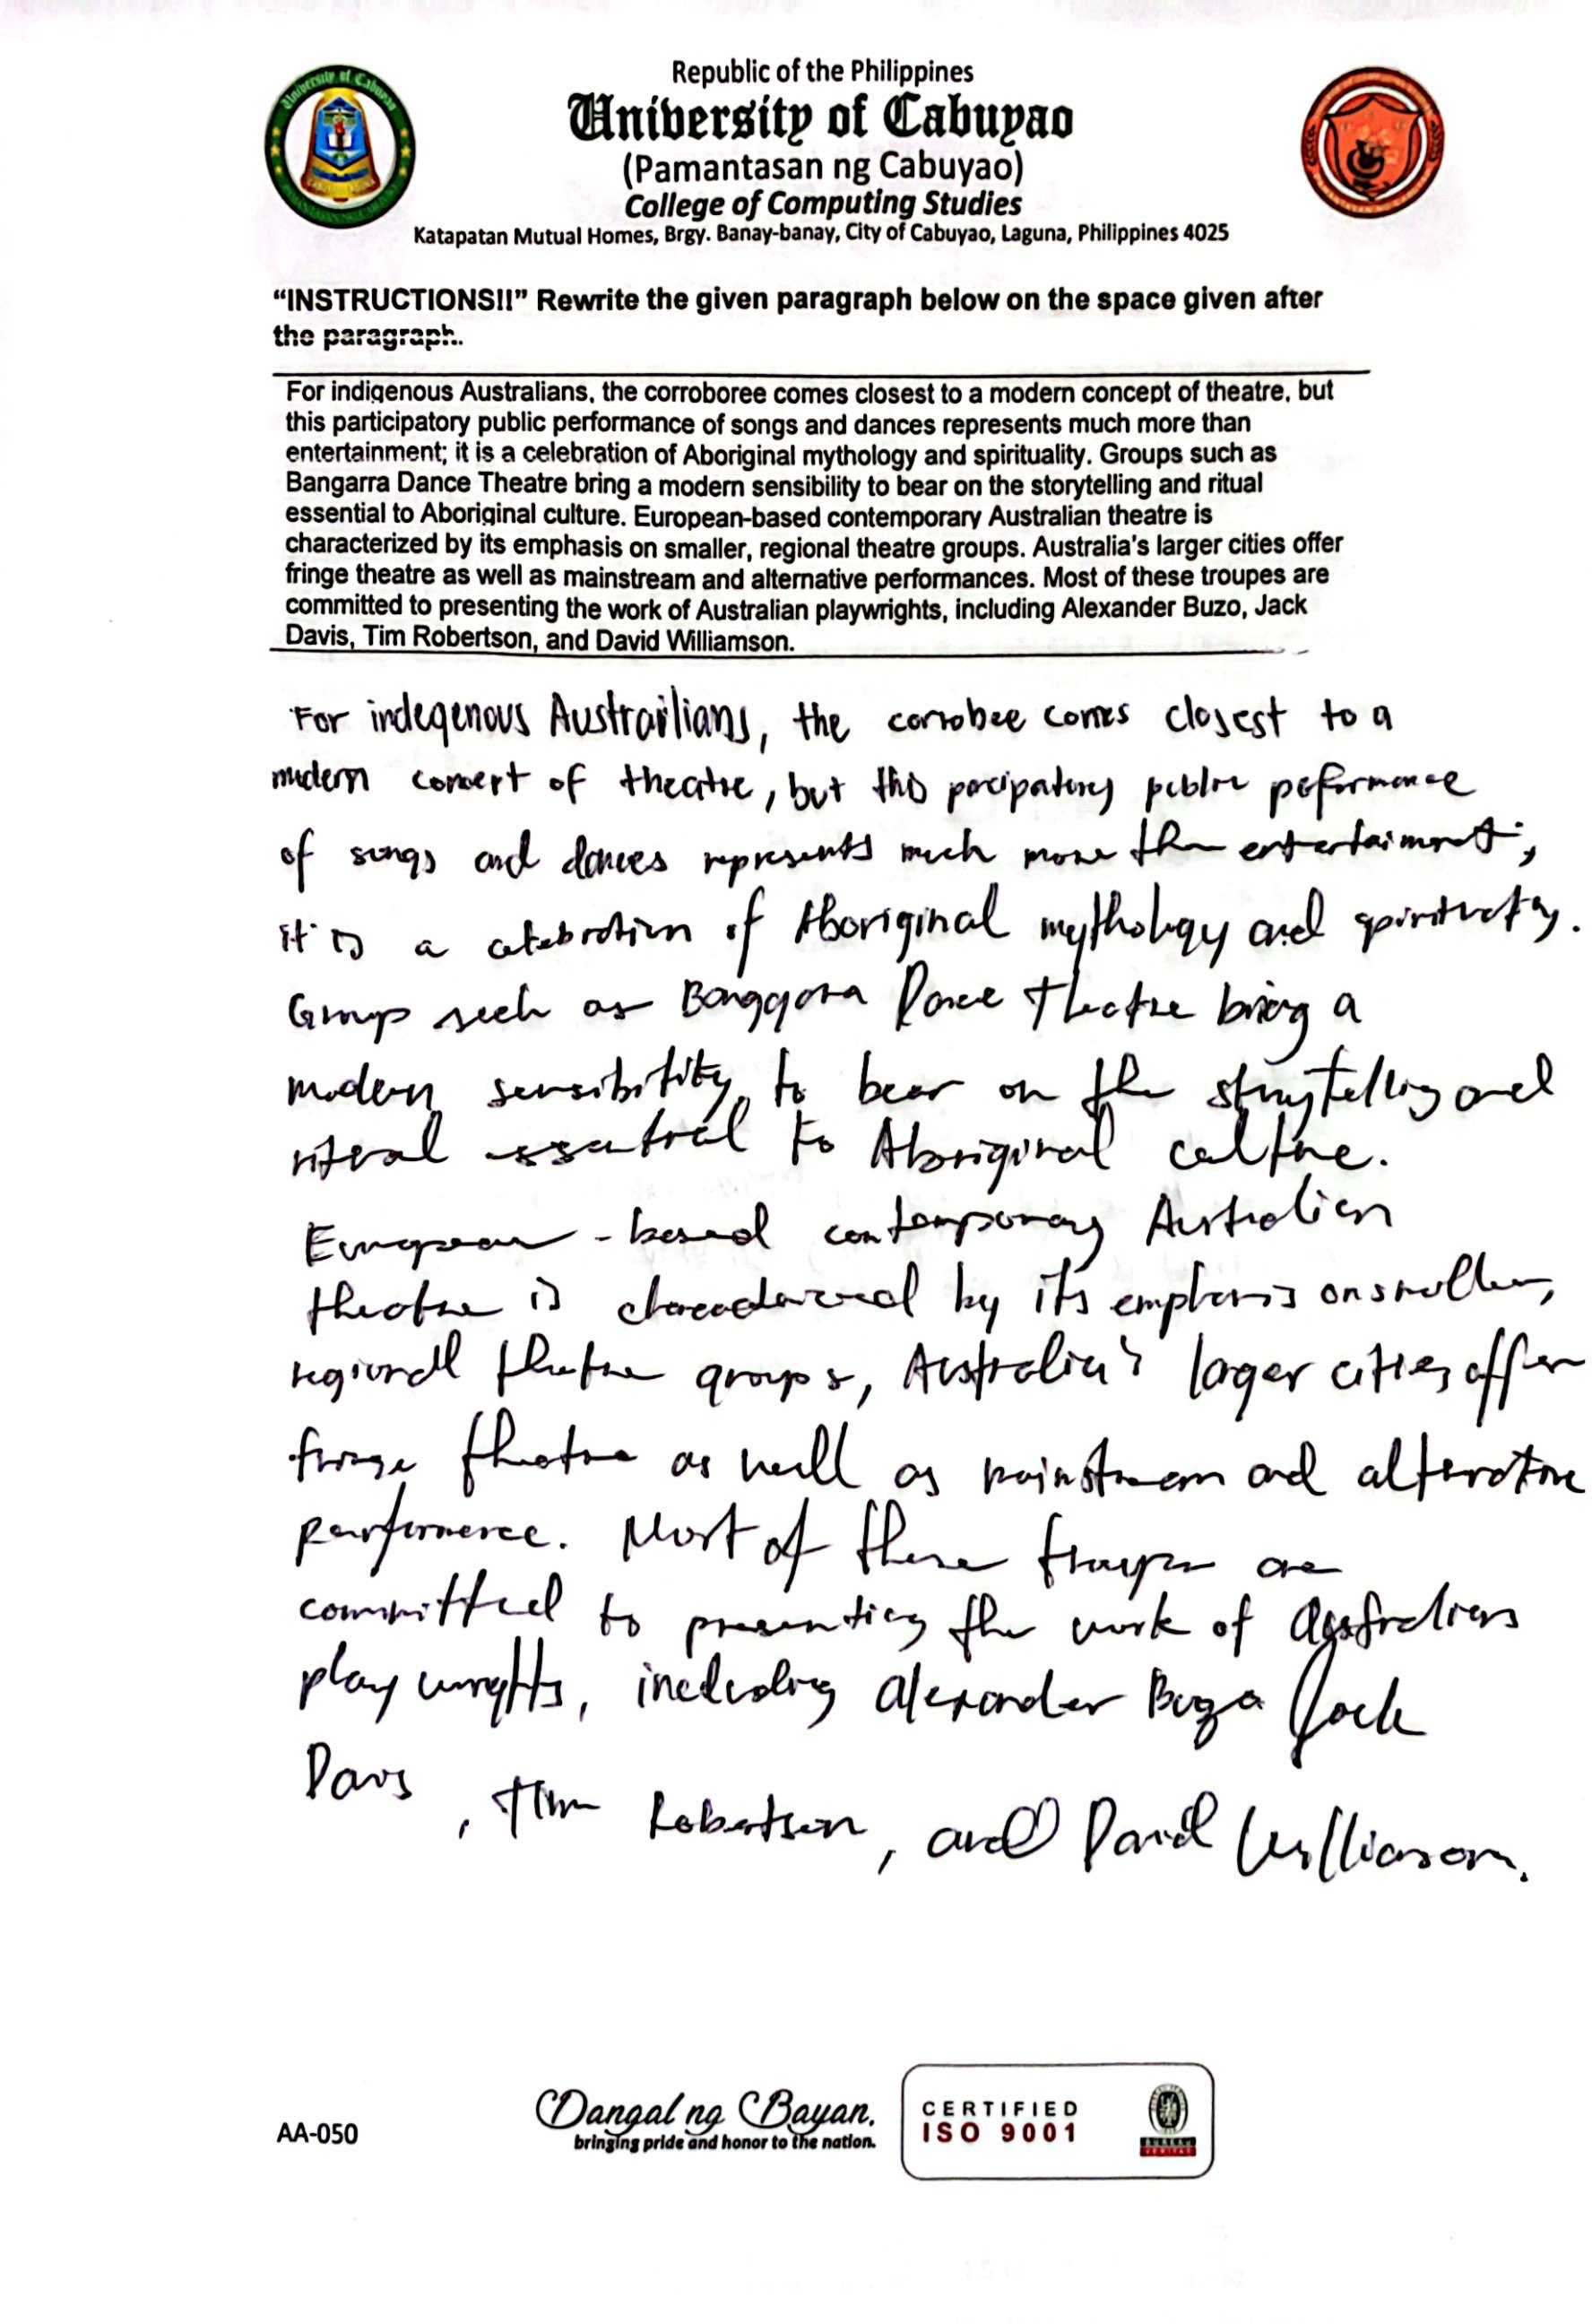 Republic of the Philippines
University of Cabuyao
(Pamantasan ng Cabuyao)
College of Computing Studies
Katapatan Mutual Homes, Brgy. Banay-banay, City of Cabuyao, Laguna, Philippines 4025
“INSTRUCTIONS!!” Rewrite the given paragraph below on the space given after
the paragraph.
For indigenous Australians, the corroboree comes closest to a modern concept of theatre, but
this participatory public performance of songs and dances represents much more than
entertainment; it is a celebration of Aboriginal mythology and spirituality. Groups such as
Bangarra Dance Theatre bring a modern sensibility to bear on the storytelling and ritual
essential to Aboriginal culture. European-based contemporary Australian theatre is
characterized by its emphasis on smaller, regional theatre groups. Australia’s larger cities offer
fringe theatre as well as mainstream and alternative performances. Most of these troupes are
committed to presenting the work of Australian playwrights, including Alexander Buzo, Jack
Davis, Tim Robertson, and David Williamson.
For indegenous Austrailians, the corrobee comes closest to a
modern concert of theatre, but this parcipatory public peformance
of songs and dances represents much more than entertaiment;
it is a celebration of Aboriginal mythology and spirituality.
Group such as Banggara Dance Theatre bring a
modern sensibility to bear on the storytelling and
ritual essential to Aboriginal culture.
European-based contemporary Australian
theatre is characterized by its emphasis on smaller,
regional theatre groups, Australia's larger cities offer
fringe theatre as well as mainstream and alternative
performance. Most of these troupes are
committed to presenting the work of Australians
playwrights, including Alexander Buzo Jack
Davis, Tim Robertson, and David Williamson.
AA-050
Dangal ng Bayan.
bringing pride and honor to the nation.
CERTIFIED
ISO 9001
BUREAU
VERITAS